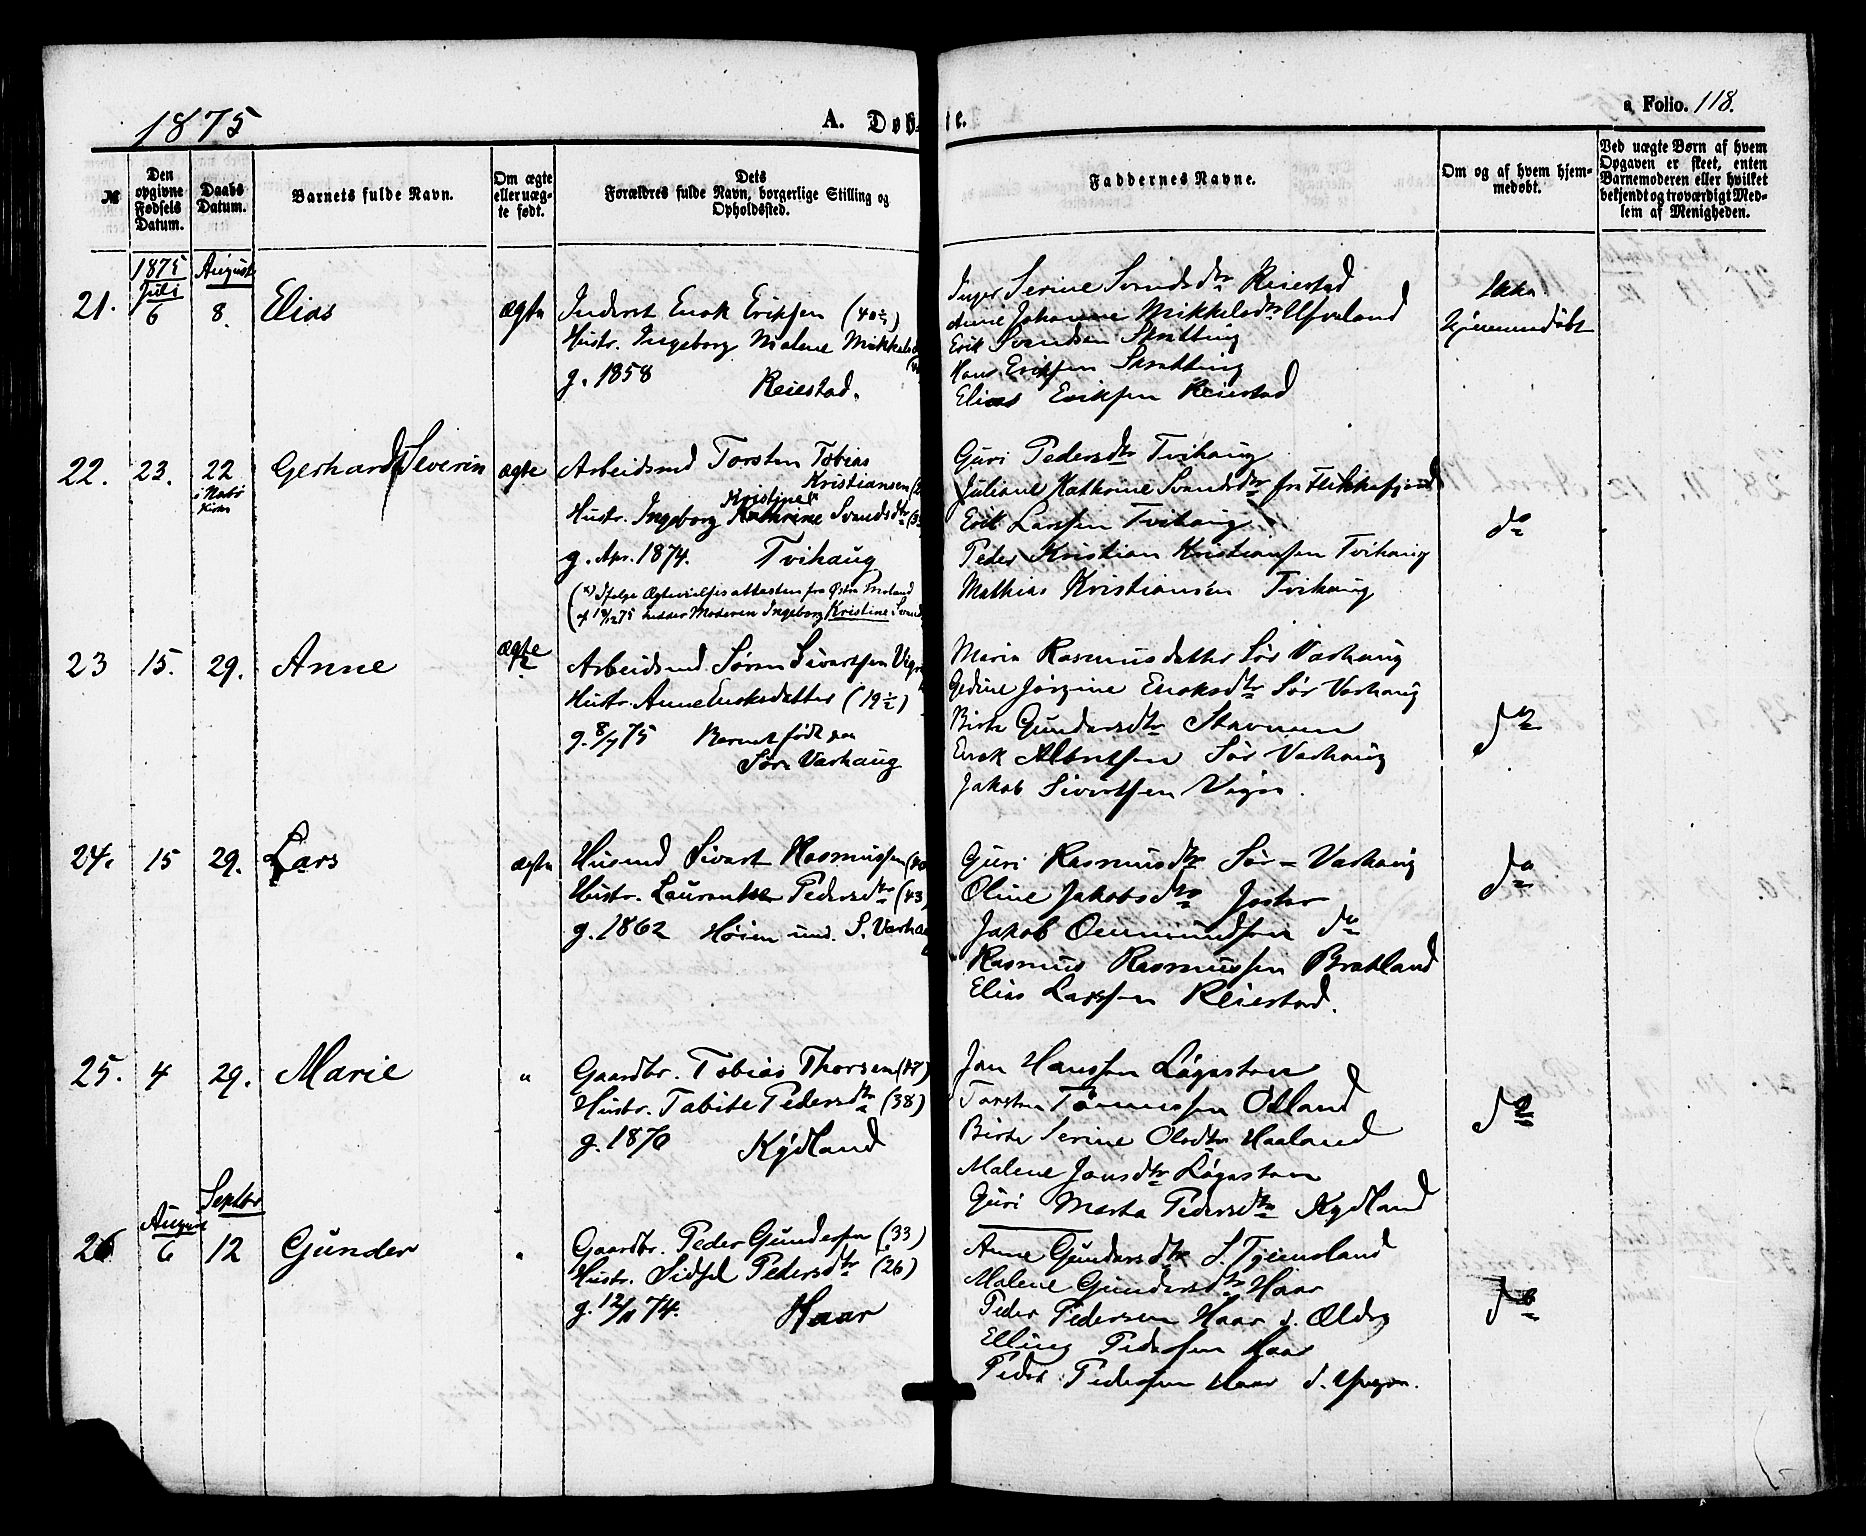 1875
A. Døb te.
a Folio. 118.
№
Den opgivne Fødsels Datum.
Daabs Datum.
Barnets fulde Navn.
Om ægte eller uægte født.
Dets Forældres fulde Navn, borgerlige Stilling og Opholdssted.
Faddernes Navne.
Om og af hvem hjemmedøbt.
Ved uægte Børn af hvem Opgaven er skeet, enten Barnemoderen eller hvilket bekjendt og troværdigt Medlem af Menigheden.
1875 August
Juli
21. 6 8. Elias ægte Inderst Enok Eriksen (40½)
Hustr. Ingeborg Malene Mikkels
g. 1858 Reiestad.
Inger Serine Svendsdtr Reiestad
Anne Johanne Mikkelsdtr Ufveland
Erik Svendsen Skratting
Hans Eriksen Skratting
Elias Eriksen Reiestad
Ikke
hjemmedøbt
22. 23. 22 Gerhard Severin ægte Arbeidsmd Torsten Tobias
i Nabo
Kirke
Kristiansen
Kristine
Hustr. Ingeborg Kathrine Svendsdtr
g. Apr. 1874. Tvihaug
(*) Ifølge Ægtevielsesattesten fra Østre Moland
hedder Moderen Ingeborg Kristine
Guri Pedersdtr Tvihaug
Juliane Kathrine Svendsdtr fra Flekkefjord
Erik Larssen Tvihaug
Peder Kristian Kristiansen Tvihaug
Mathias Kristiansen Tvihaug
do
23 15. 29. Anne ægte Arbeidsmd Søren Sivertsen
Hustr. Anne Enoksdatter (19½)
g. 8/7 75 Barnet født paa
Sør Varhaug
Maria Rasmusdatter Sør Varhaug
Gedine Jørgine Enoksdtr Sør Varhaug
Birte Gundersdtr Stavnum
Enok Albretsen Sør Varhaug
Jakob Sivertsen
do
24. 15 29. Lars ægte Husmd Sivert Rasmussen (40
Hustr. Laurentse Pedersdtr (43)
g. 1862 Høien und. S. Varha
Guri Rasmusdtr Sør-Varhaug
Oline Jakobsdtr
Jakob Ommundsen do
Rasmus Rasmussen Bratland
Elias Larssen Reiestad.
do
25. 4 29. Marie " Gaardbr. Tobias Thorsen (47)
Hustr. Tabite Pedersdtr (38)
g. 1870 Kydland
Jan Hanssen Løgastøen
Torsten Tønnessen Odland
Birte Serine Olsdtr Haaland
Malene Jansdtr Løgastøen
Guri Marta Pedersdtr Kydland
do
August Septbr
26 6 12 Gunder " Gaardbr. Peder Gundersen (33)
Hustr. Sidsel Pedersdtr (26)
g. 12/11 74. Haar
Anne Gundersdtr S. Tjemsland
Malene Gundersdtr Haar
Peder Pedersen Haar d. Ældre
Elling Pedersen Haar
Peder Pedersen Haar d. Yngre.
do